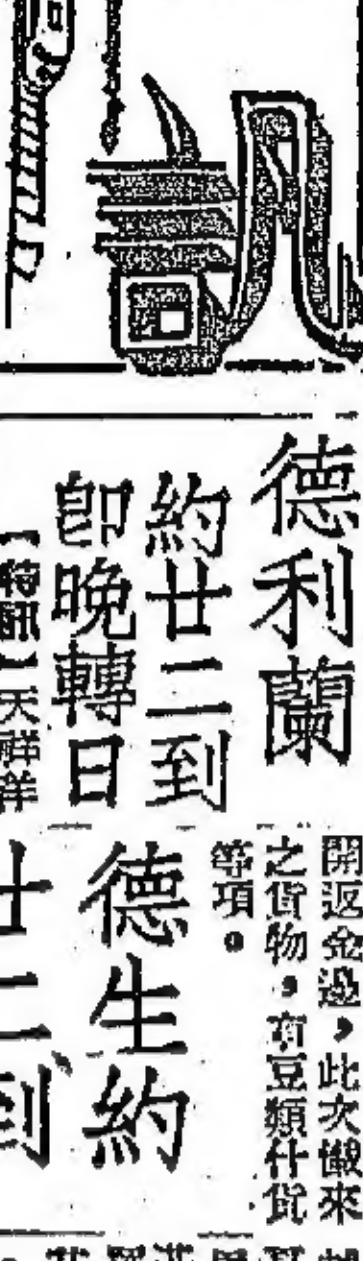 訊
德利蘭
約廿二到
即晚轉日
【特訊】天祥洋
開返金邊，此次儎來
之貨物，有豆類什貨
等項。
德生約
廿二到